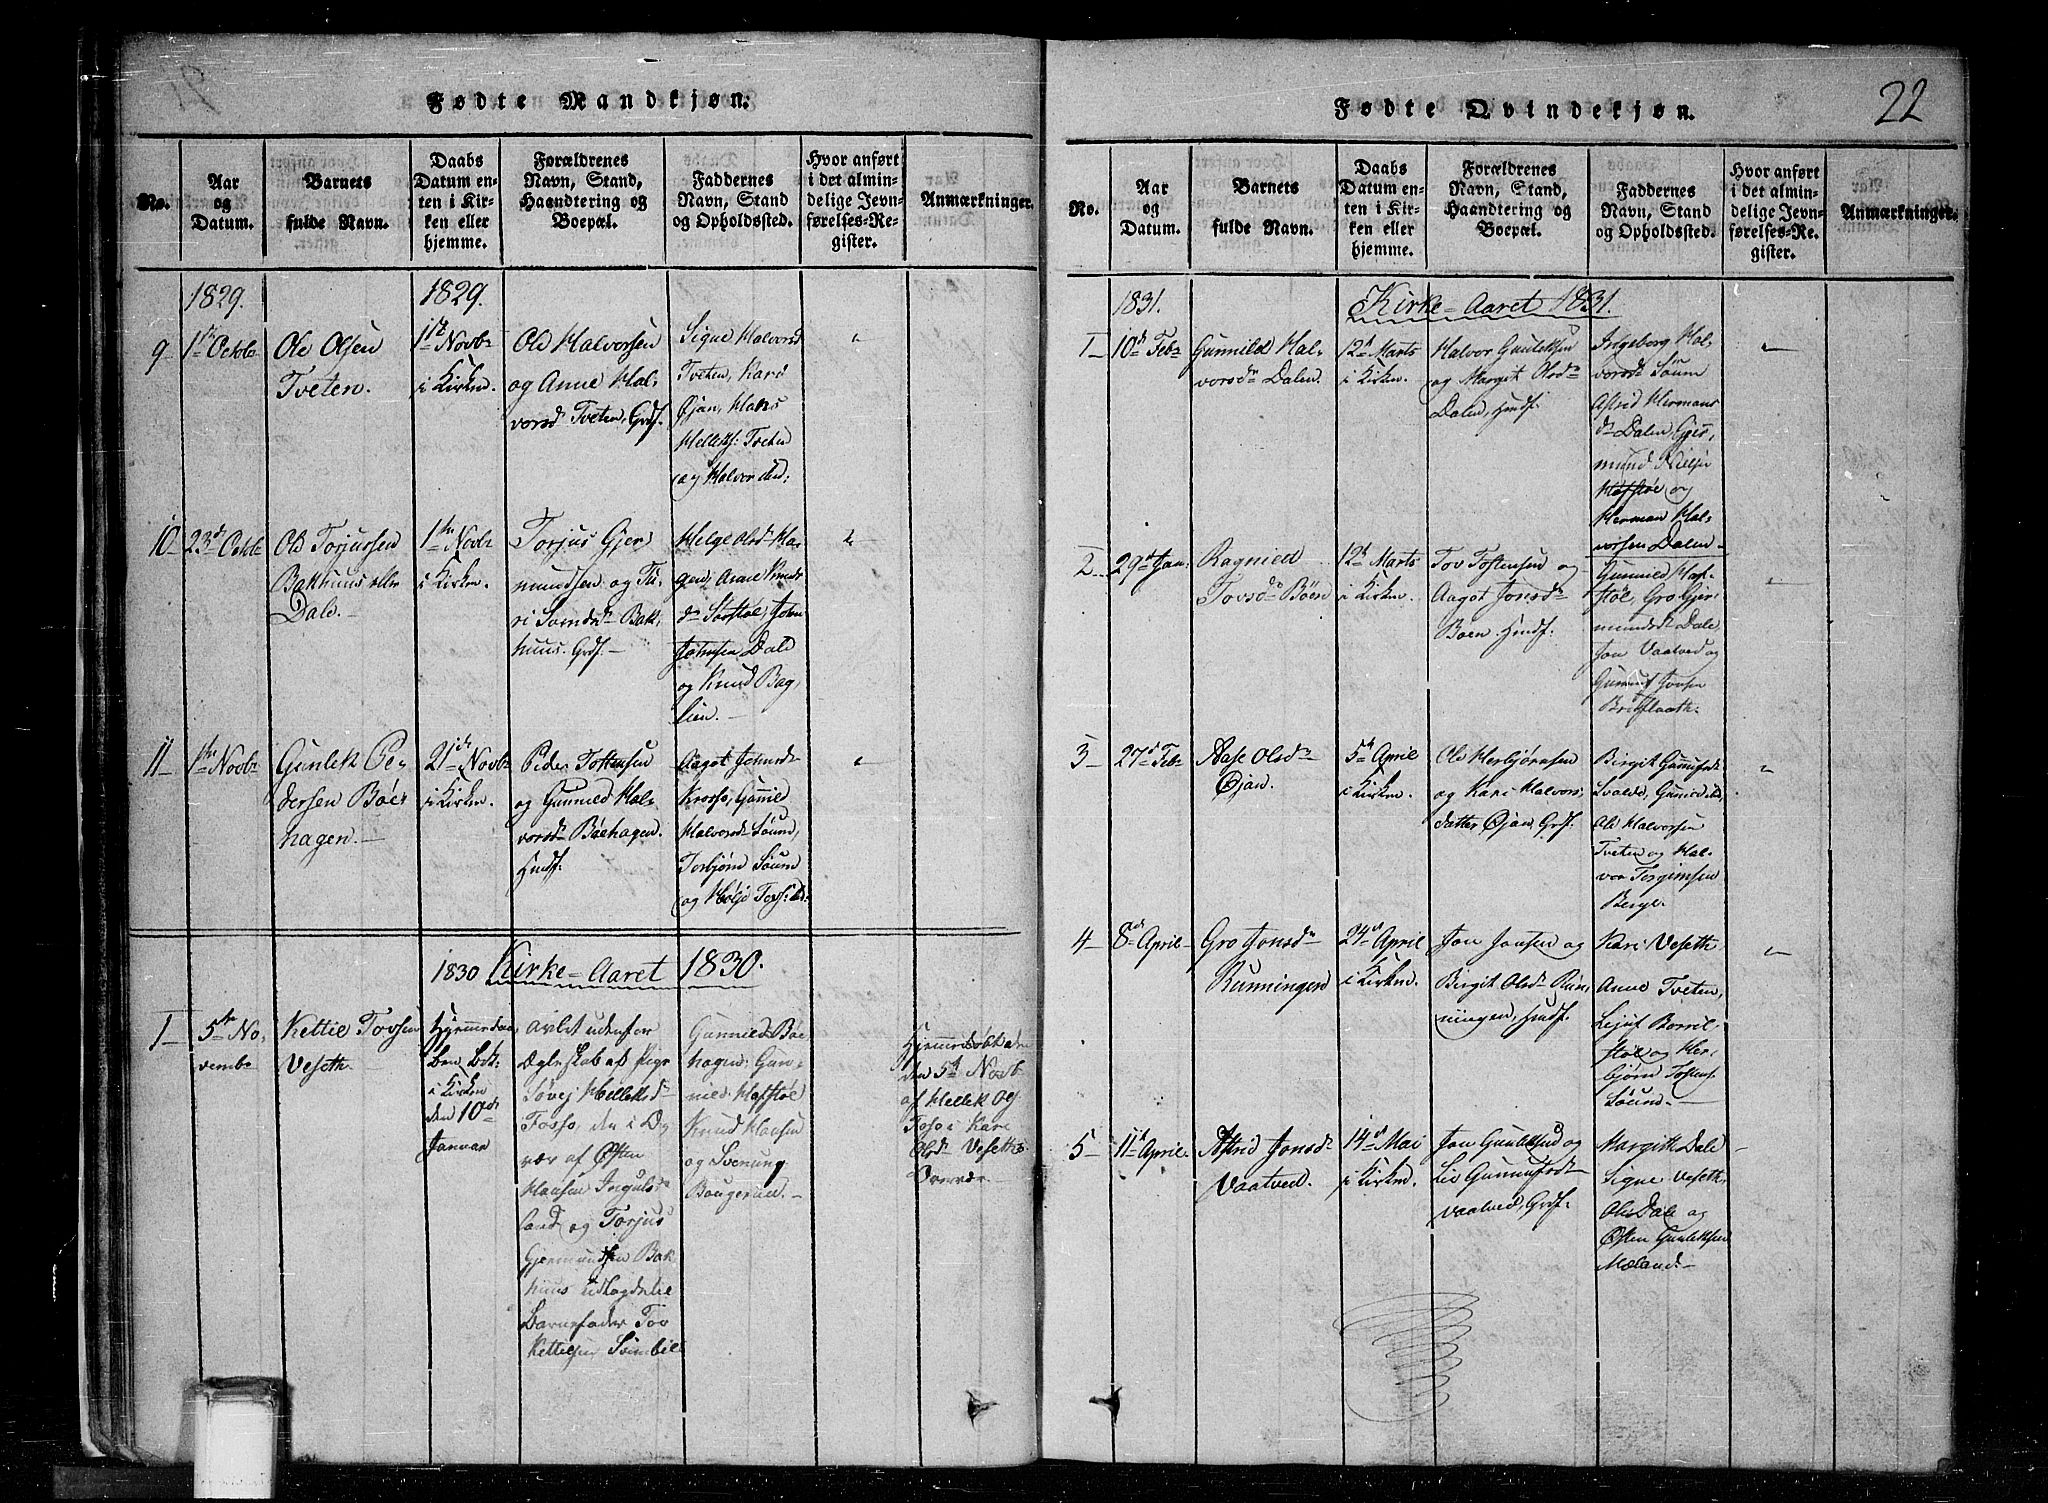 Fødte Mandkjøn.
No.
Aar
og
Datum.
Barnets
fulde Navn.
Daabs
Datum en-
ten i Kir-
ken eller
hjemme.
Forældrenes
Navn, Stand,
Haandtering og
Boepæl.
Faddernes
Navn, Stand
og Opholdssted.
Hvor anført
i det almin-
delige Jevn-
førelses-Re-
gister.
Anmærkninger.
1829.
1829.
9
1ste Octob
Ole Olsen
Tveten.
1ste Novbr
i Kirken.
Ole Halvorsen
og Anne Hal-
vorsd Tveten, Grdf.
Signe Halvorsd
Tveten, Kari
Øjan, Hans
Helleks: Tveten
og Halvor
10
23de Octob
Ole Torjussen
Bakhuus eller
Dale.
1ste Novbr
i Kirken.
Torjus Gjer
mundsen og Tu-
ri Bak,
huus. Grdf.
Helge Olsd Ha-
gen, Anne Knuds
dr Sørstøl, John
Johnsen Dale
og Knud Bag
lien.
11
1ste Novbr
Gunlek Pe-
dersen Bøe-
hagen.
21de Novbr
i Kirken.
Peder Tostensen
og Gunild Hal-
vorsdr Bøehagen.
Hmdf:
Aagot Johnsdr
Krosso, Gunild
Halvorsdr Söum,
Torbjörn Söum
og Hölje
1830 Kirke=Aaret 1830.
1
5te No-
vembr
Kettil Tovsen
Veseth.
Hjemmedøbt
i Kirken
den 10de
Januar
avlet udenfor
Ægteskab af Pige
Tövej Helleksdr
Fosso,
af Østen
Hansen Inguls-
land og Torjus
Gjermundsen Bak
huus udlagdes til
Barnefader Tov
Kettilsen
Gunnild Bøe-
hagen, Gun-
nild Hafstöl
Knud Hansen
og Svenung
Baugerud.
Hjemmedøbt
den 5te Novb
af Hellek
Foso i Kari
Olsdr Veseths
Overvær.
Fødte Qvindekjøn.
22
No.
Aar
og
Datum.
Barnets
fulde Navn.
Daabs
Datum en-
ten i Kir-
ken eller
hjemme.
Forældrenes
Navn, Stand,
Haandtering og
Boepæl.
Faddernes
Navn, Stand
og Opholdssted.
Hvor anført
i det almin-
delige Jevn-
førelses-Re-
gister.
Anmærkninger.
1831.
Kirke=Aaret 1831.
1
10de Febr
Gunnild Hal-
vorsdr Dalen.
12te Marts
i Kirken.
Halvor Gunleksen
og Margit Olsdr
Dalen, Hmdf.
Ingeborg Hal-
vorsdr Söum
Astrid Hermans
dr Dalen, Gjer
mund Nielsen
Hafstøl og
Herman Hal-
vorsen Dalen
2
29de Jan:
Ragnild
Tovsdr Böen
12te Marts
i Kirken.
Tov Tostensen og
Aagot Jonsdr
Boen. Hmdf:
Gunnild Haf-
støl, Gro Gjer
mundsdr Dale
Jon Vaatved og
Gunnuf Tovsen
3
27de Febr
Aase Olsdr
Øjan.
5te April
i Kirken.
Ole Herbjørnsen
og Kari Halvors
datter Øjan, Grdf.
Birgit Gunnufsdr
Ole Halvorsen
Tveten og Hal-
vor Torgimsen
Berge.
4
8de April
Gro Jonsdr
Runningen
24de April
i Kirken.
Jon Jonsen og
Birgit Olsdr Run
ningen, Hmdf.
Kari Veseth
Anne Tveten,
Borril-
støl og Her-
björn Tostens:
Söum.
5
11te April.
Astrid Jonsdr
Vaatved.
14de Mai
i Kirken.
Jon Gunleksen og
Liv Gunnufsdr
Vaatved, Grdf.
Margith Dale
Signe Veseth,
Ole Dale og
Østen Gunleksen
Mæland.